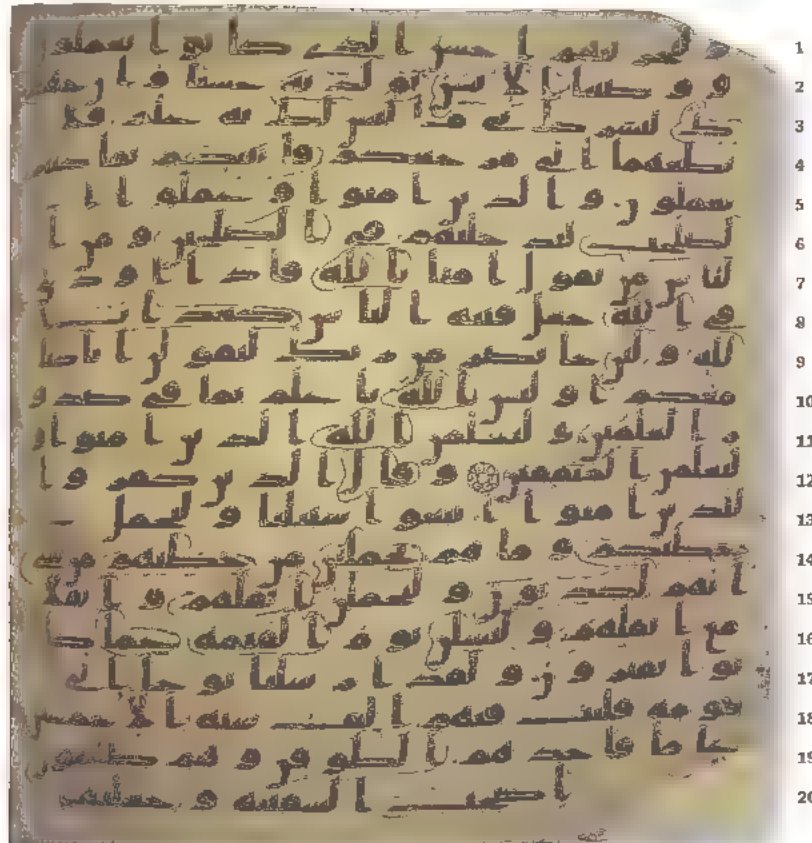 و لنجزينهم احسن الذي كانوا يعملون
و وصينا الانسن بولديه حسنا و ان جهد
ك لتشرك بي ما ليس لك به علم فلا
تطعهما الي مرجعكم فانبئكم بما كنتم
تعملون و الذين امنوا و عملوا ا
لصلحت لندخلنهم في الصلحين و من ا
لناس من يقول امنا بالله فاذا اوذي
في الله جعل فتنة الناس كعذاب ا
لله و لئن جا نصر من ربك ليقولن انا كنا
معكم اوليس الله باعلم بما في صدو
ر العلمين و ليعلمن الله الذين امنوا و
ليعلمن المنفقين و قال الذين كفروا
للذين امنوا اتبعوا سبيلنا و لنحمل
خطيكم و ما هم بحملين من خطيهم من شي
انهم لكذبون و ليحملن اثقلهم و اثقلا
مع اثقلهم و ليسلن يوم القيمة عما كا
نوا يفترون و لقد ارسلنا نوحا الى
قومه فلبث فيهم الف سنة الا خمسين
عاما فاخذهم الطوفن و هم ظلمون
اصحب السفينة و جعلنها